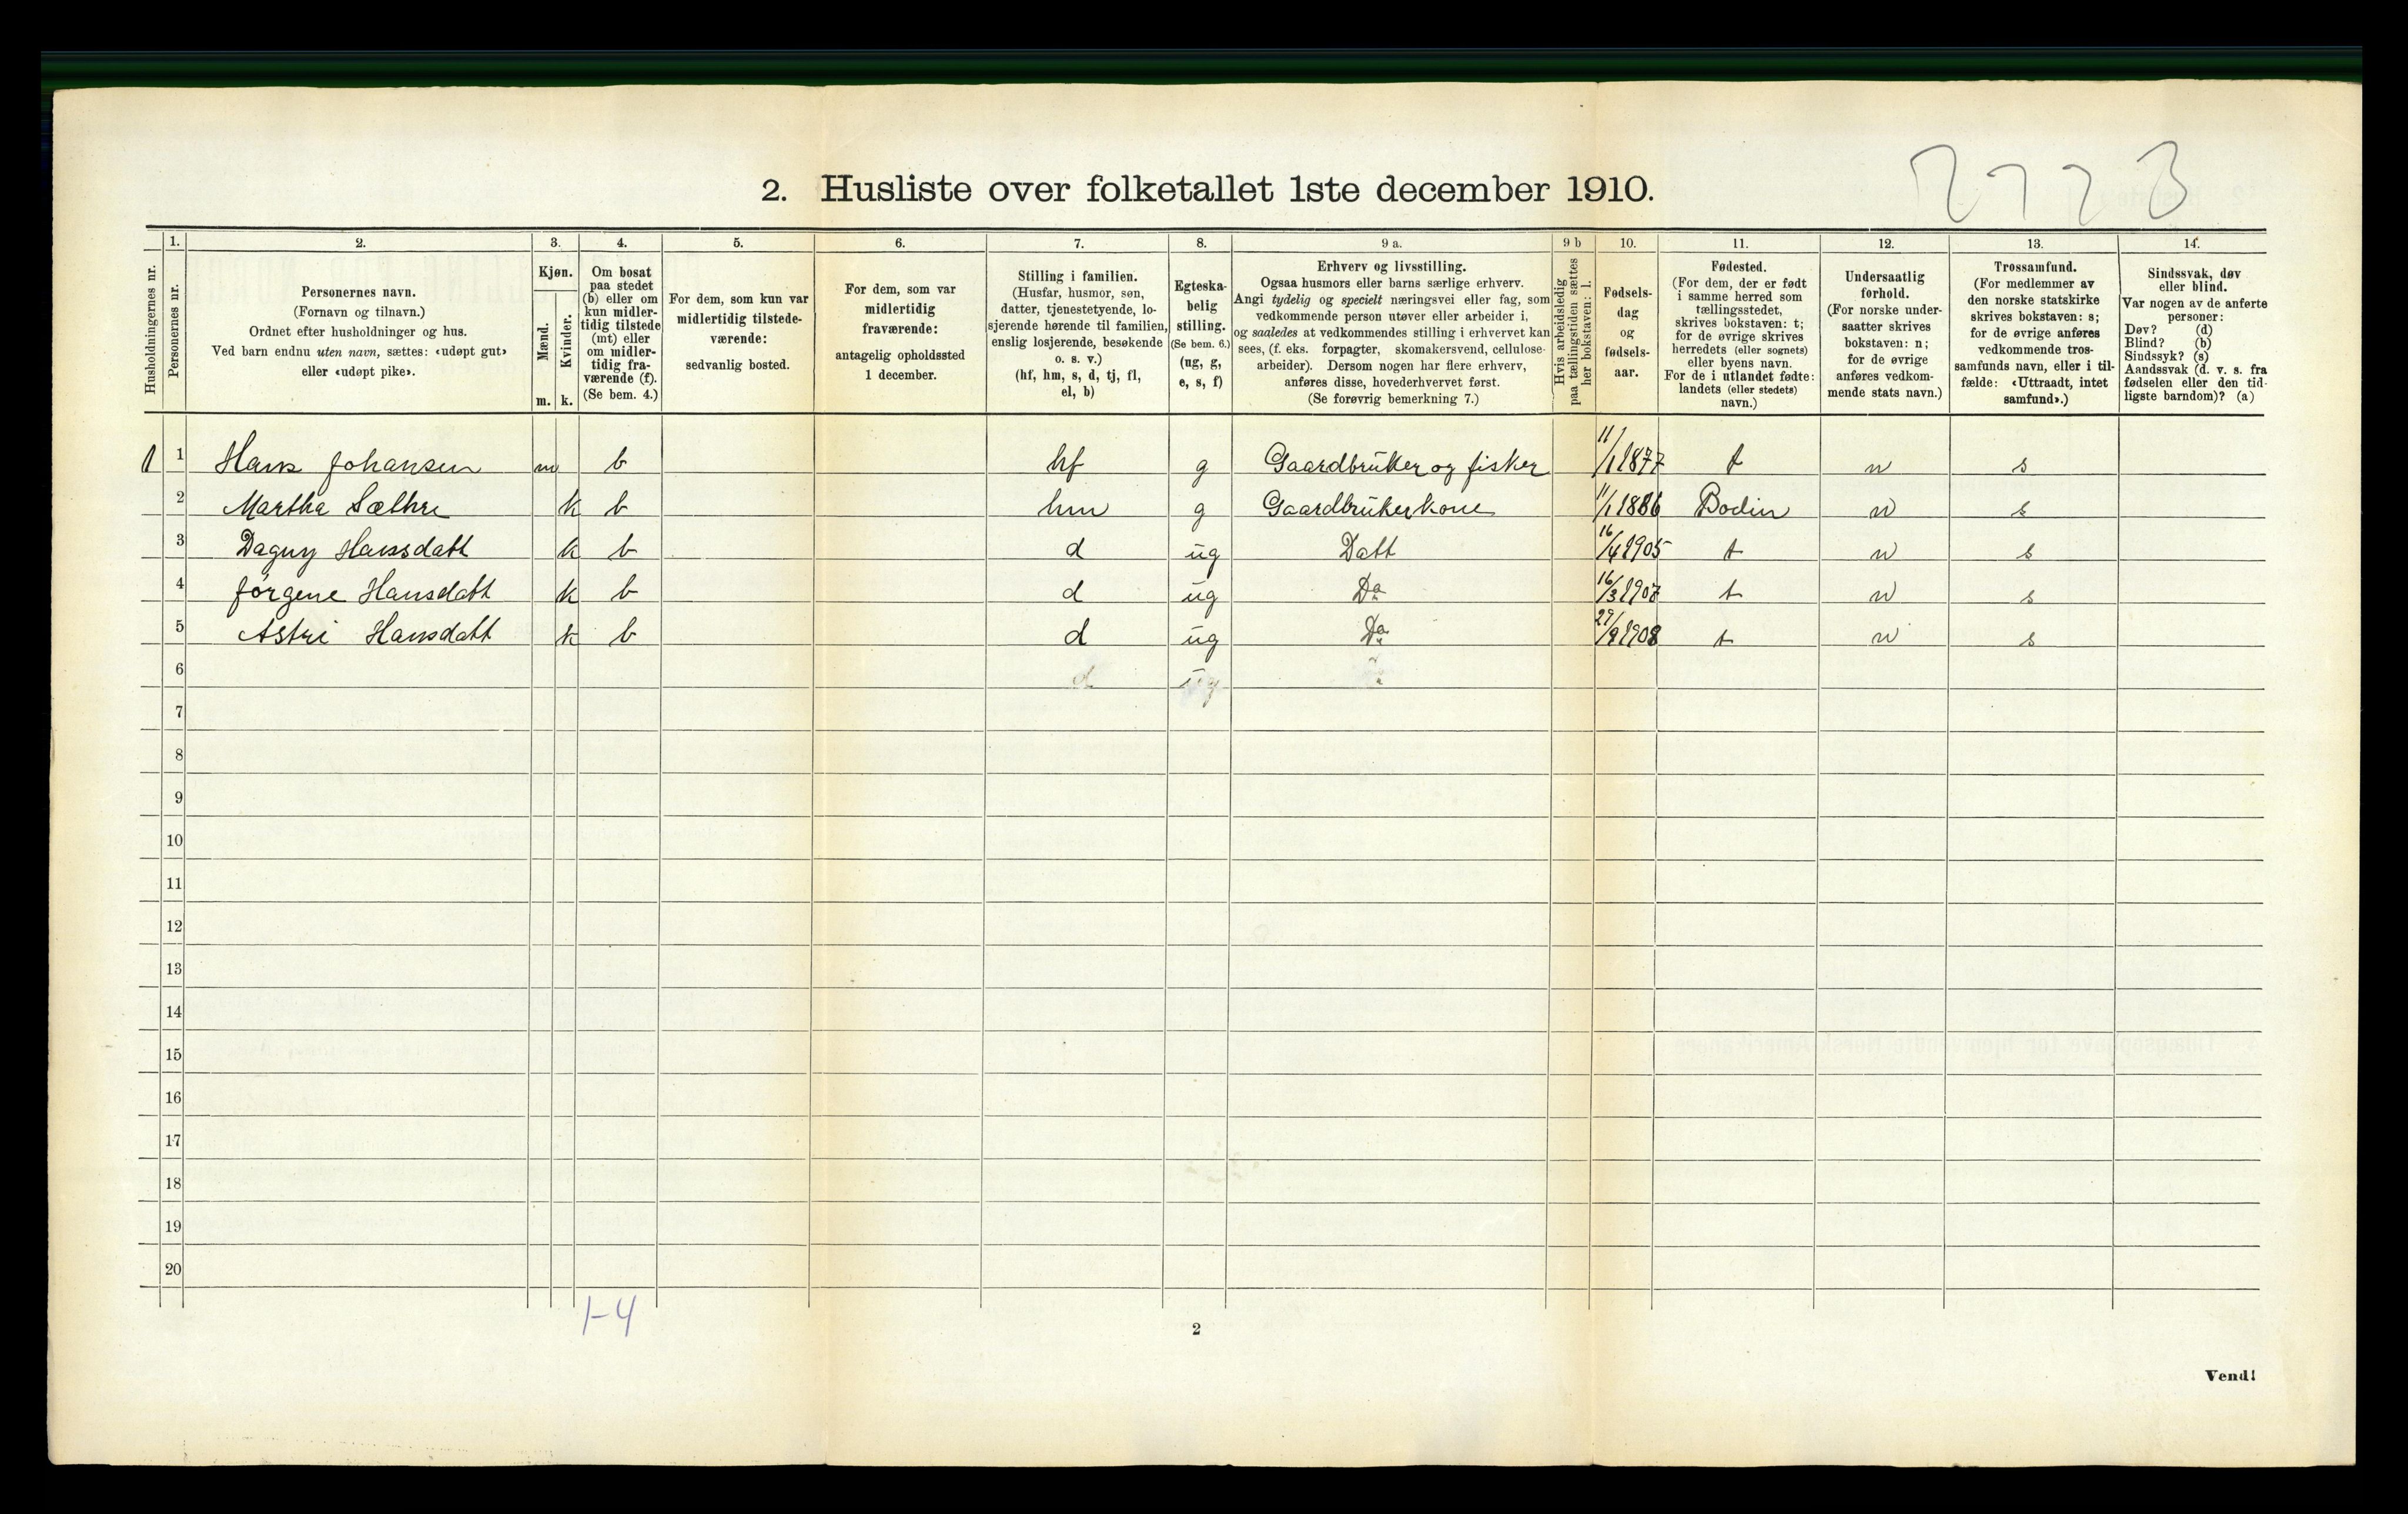 2. Husliste over folketallet 1ste december 1910.
Husholdningernes nr.
1. Personernes nr.
2. Personernes navn.
(Fornavn og tilnavn.)
Ordnet efter husholdninger og hus.
Ved barn endnu uten navn, sættes: «udøpt gut»
eller «udøpt pike».
3. Kjøn.
Mænd. m.
Kvinder. k.
4. Om bosat
paa stedet
(b) eller om
kun midler-
tidig tilstede
(mt) eller
om midler-
tidig fra-
værende (f).
(Se bem. 4.)
5. For dem, som kun var
midlertidig tilstede-
værende:
sedvanlig bosted.
6. For dem, som var
midlertidig
fraværende:
antagelig opholdssted
1 december.
7. Stilling i familien.
(Husfar, husmor, søn,
datter, tjenestetyende, lo-
sjerende hørende til familien,
enslig losjerende, besøkende
o. s. v.)
(hf, hm, s, d, tj, fl,
el, b)
8. Egteska-
belig
stilling.
(Se bem. 6.)
(ug, g,
e, s, f)
9 a. Erhverv og livsstilling.
Ogsaa husmors eller barns særlige erhverv.
Angi tydelig og specielt næringsvei eller fag, som
vedkommende person utøver eller arbeider i,
og saaledes at vedkommendes stilling i erhvervet kan
sees, (f. eks. forpagter, skomakersvend, cellulose-
arbeider). Dersom nogen har flere erhverv,
anføres disse, hovederhvervet først.
(Se forøvrig bemerkning 7.)
9 b Hvis arbeidsledig
paa tællingstiden sættes
her bokstaven: l.
10. Fødsels-
dag
og
fødsels-
aar.
11. Fødested.
(For dem, der er født
i samme herred som
tællingsstedet,
skrives bokstaven: t;
for de øvrige skrives
herredets (eller sognets)
eller byens navn.
For de i utlandet fødte:
landets (eller stedets)
navn.)
12. Undersaatlig
forhold.
(For norske under-
saatter skrives
bokstaven: n;
for de øvrige
anføres vedkom-
mende stats navn.)
13. Trossamfund.
(For medlemmer av
den norske statskirke
skrives bokstaven: s;
for de øvrige anføres
vedkommende tros-
samfunds navn, eller i til-
fælde: «Uttraadt, intet
samfund».)
14. Sindssvak, døv
eller blind.
Var nogen av de anførte
personer:
Døv? (d)
Blind? (b)
Sindssyk? (s)
Aandssvak (d. v. s. fra
fødselen eller den tid-
ligste barndom)? (a)
1 1 Hans Johansen m b hf g Gaardbruker og fisker 11/1 1877 t n s
2 Martha Sæthre k b hm g Gaardbrukerkone 11/1 1886 Bodin n s
3 Dagny Hansdatt k b d ug Datt 16/4 1905 t n s
4 Jørgene Hansdatt k b d ug Do 16/3 1907 t n s
5 Astri Hansdatt k b d ug Do 29/9 1908 t n s
6 d ug
7
8
9
10
11
12
13
14
15
16
17
18
19
20
1-4
2
Vend!